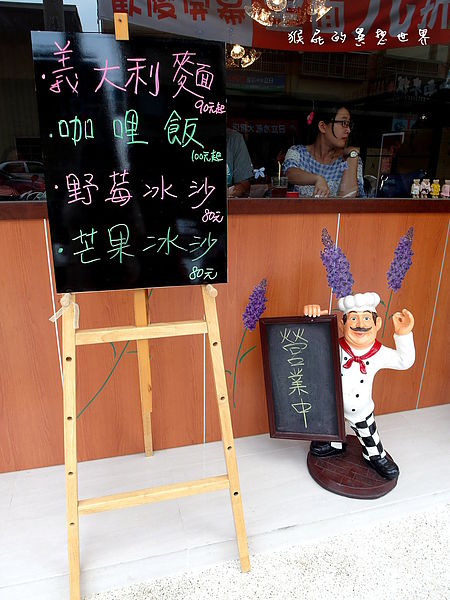 歡慶開幕 全面九折
猴屁的異想世界
·義大利麵
90元起
·咖哩飯
100元起
·野莓冰沙
80元
·芒果冰沙
80元
營業中